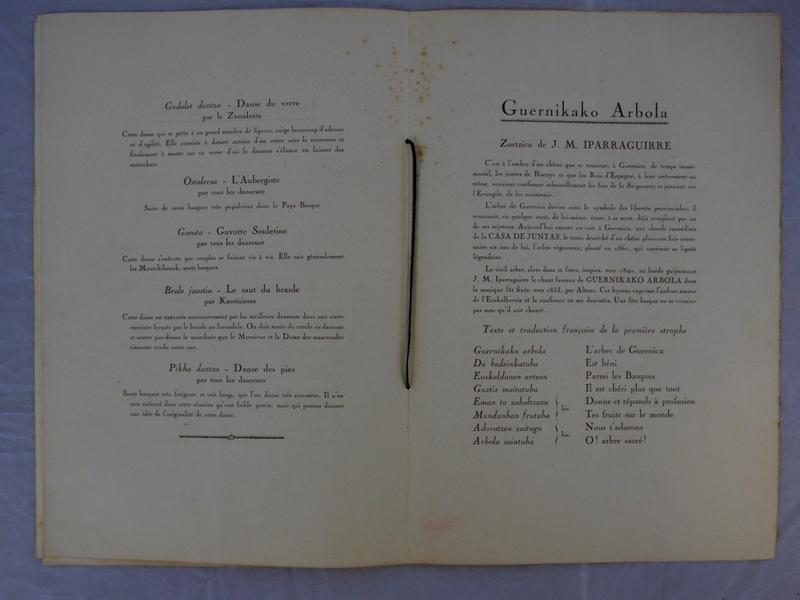 Godalet dantza - Danse du verre
par le Zamalzaïn
Cette danse qui se prête à un grand nombre de figures, exige beaucoup d'adresse
et d'agilité. Elle consiste à danser autour d'un verre sans le renverser et
finalement à monter sur ce verre d'où le danseur s'élance en faisant des
entrechats.
Ostalersa - L'Aubergiste
par tous les danseurs
Suite de sauts basques très populaires dans le Pays Basque
Gavota - Gavotte Souletine
par tous les danseurs
Cette danse s'exécute par couples se faisant vis à vis. Elle suit généralement
les Moutchikouak, sauts basques.
Brale jaustia - Le saut du branle
par Kantiniersa
Cette danse est exécutée successivement par les meilleurs danseurs dans une vaste
enceinte formée par le branle ou farandole. On doit sortir du cercle en dansant
et sauter par-dessus le mouchoir que le Monsieur et la Dame des mascarades
tiennent tendu entre eux.
Pikha dantza - Danse des pies
par tous les danseurs
Sauts basques très fatigants et très longs, que l'on danse très rarement. Il n'en
sera exécuté dans cette réunion qu'une faible partie, mais qui pourra donner
une idée de l'originalité de cette danse.
Guernikako Arbola
Zortzico de J. M. IPARRAGUIRRE
C'est à l'ombre d'un chêne que se tenaient, à Guernica, de temps immé-
morial, les juntes de Biscaye et que les Rois d'Espagne, à leur avènement au
trône, venaient confirmer solennellement les fors de la Seigneurie et juraient sur
l'Evangile, de les maintenir.
L'arbre de Guernica devint ainsi le symbole des libertés provinciales; il
renaissait, en quelque sorte, de lui-même, étant, à sa mort, déjà remplacé par un
de ses rejetons. Aujourd'hui encore on voit à Guernica, aux abords immédiats
de la CASA DE JUNTAS, le tronc desséché d'un chêne plusieurs fois cente-
naire est issu de lui, l'arbre vigoureux, planté en 1860, qui continue sa lignée
légendaire.
Le vieil arbre, alors dans sa force, inspira, vers 1840, au barde guipuzcoan
J. M. Iparraguirre le chant fameux de GUERNIKAKO ARBOLA dont
la musique fût fixée, vers 1853, par Altuna. Cet hymne exprime l'ardent amour
de l'Euskalherria et la confiance en ses destinées. Une fête basque ne se termine
pas sans qu'il soit chanté.
Texte et traduction française de la première strophe
Guernikako arbola L'arbre de Guernica
Da bedeinkatuba Est béni
Euskaldunen artean Parmi les Basques
Guztiz maitatuba Il est chéri plus que tout
Eman ta zabaltzazu Donne et répands à profusion
bis
Mundunban frutuba Tes fruits sur le monde
Adoratzen zaitugu Nous t'adorons
bis
Arbola saintuba O! arbre sacré!